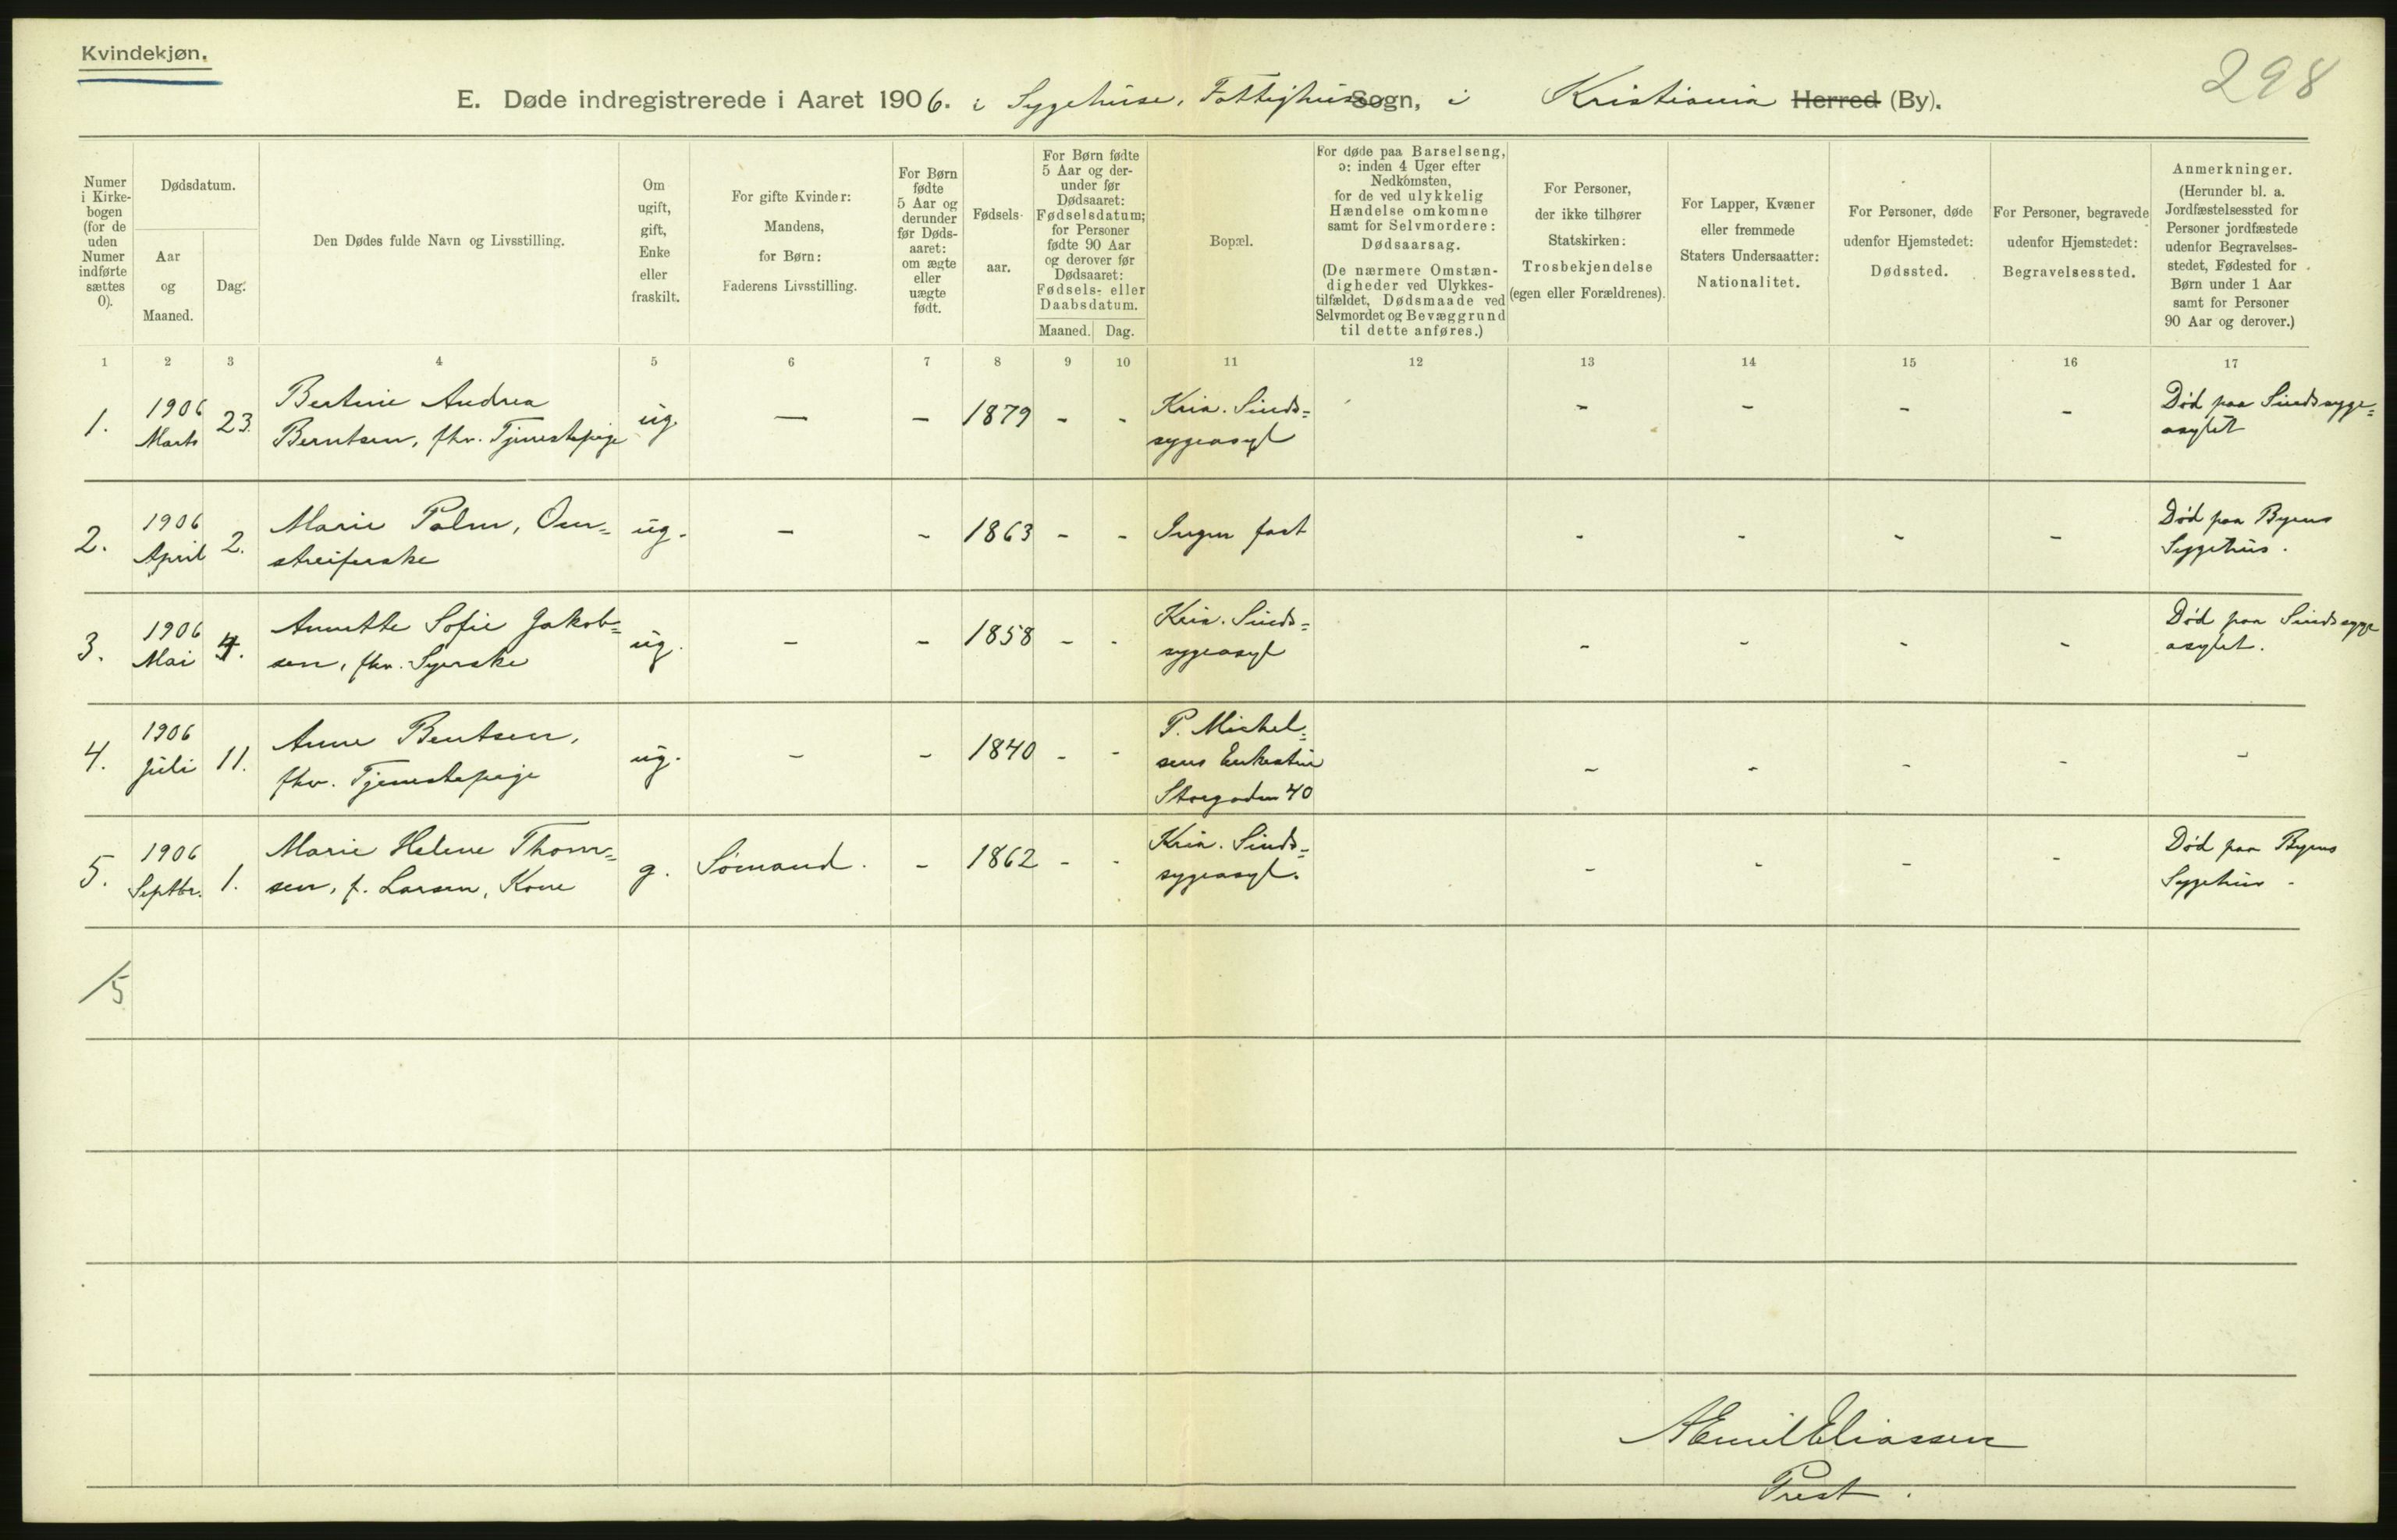 Kvindekjøn.
298
E. Døde indregistrerede i Aaret 1906. i Sygehuse, Fattighuse Sogn, i Kristiania Herred (By).
Numer i Kirkebogen (for de uden Numer indførte sættes 0).
Dødsdatum.
Aar og Maaned.
Dag.
Den Dødes fulde Navn og Livsstilling.
Om ugift, gift, Enke eller fraskilt.
For gifte Kvinder: Mandens, for Børn: Faderens Livsstilling.
For Børn fødte 5 Aar og derunder før Dødsaaret: om ægte eller uægte født.
Fødselsaar.
For Børn fødte 5 Aar og derunder før Dødsaaret: Fødselsdatum; for Personer fødte 90 Aar og derover før Dødsaaret: Fødsels- eller Daabsdatum.
Maaned. Dag.
Bopæl.
For døde paa Barselseng, ɔ: inden 4 Uger efter Nedkomsten, for de ved ulykkelig Hændelse omkomne samt for Selvmordere: Dødsaarsag.
(De nærmere Omstændigheder ved Ulykkestilfældet, Dødsmaade ved Selvmordet og Bevæggrund til dette anføres.)
For Personer, der ikke tilhører Statskirken: Trosbekjendelse (egen eller Forældrenes).
For Lapper, Kvæner eller fremmede Staters Undersaatter: Nationalitet.
For Personer, døde udenfor Hjemstedet: Dødssted.
For Personer, begravede udenfor Hjemstedet: Begravelsessted.
Anmerkninger.
(Herunder bl. a. Jordfæstelsessted for Personer jordfæstede udenfor Begravelsesstedet, Fødested for Børn under 1 Aar samt for Personer 90 Aar og derover.)
1 2 3 4 5 6 7 8 9 10 11 12 13 14 15 16 17
1. 1906 Marts 23. Bertine Andrea Berntsen, fhv. Tjenestepige ug. — - 1879 - - Kria. Sinds=sygeasyl - - - - Død paa Sindssyge=asylet
2. 1906 April 2. Marie Palm, Om=streiferske ug. - - 1863 - - Ingen fast - - - - Død paa Byens Sygehus.
3. 1906 Mai 4. Annette Sofie Jakob=sen, fhv. Syerske ug. - - 1858 - - Kria. Sinds=sygeasyl - - - - Død paa Sindssygeasylet.
4. 1906 Juli 11. Anne Bentsen, fhv. Tjenestepige ug. - - 1840 - - P. Michel=sens Enkestue Storgaden 40 - - - - -
5. 1906 Septbr. 1. Marie Helene Thom=sen, f. Larsen, Kone g. Sømand. - 1862 - - Kria. Sinds=sygeasyl. - - - - Død paa Byens Sygehus -
/5
A Emil Eliassen
Prest.